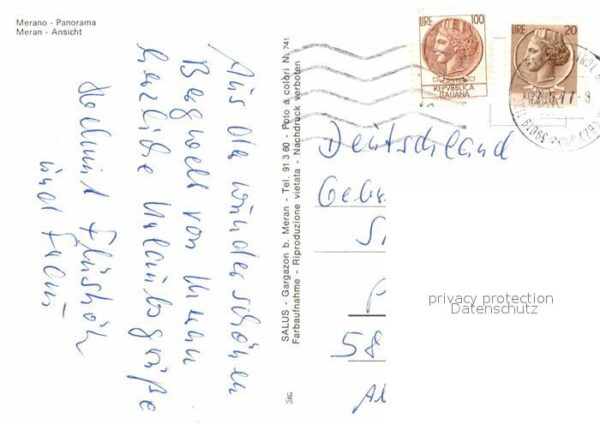 Merano - Panorama
Meran - Ansicht
Aus der wunderschönen
Bergwelt von Meran
herzliche Urlaubsgrüße
Helmut
und Frau
SALUS - Gargazon b. Meran - Tel. 91 3 60 - Foto a colori N. 741
Farbaufnahme - Riproduzione vietata - Nachdruck verboten
LIRE 100
REPVBBLICA
ITALIANA
LIRE 20
Deutschland
Geb
S
58
privacy protection
Datenschutz